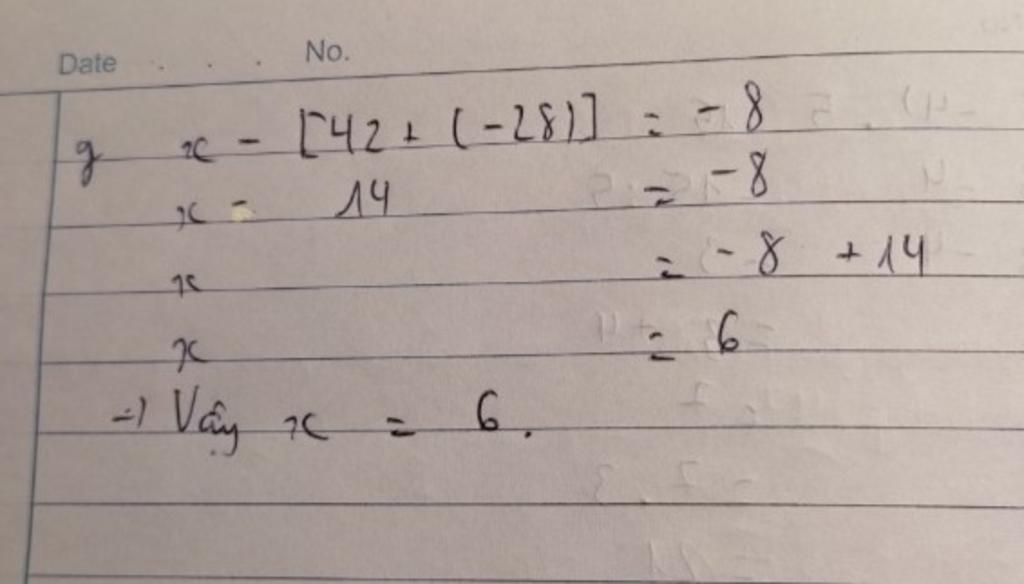 Date . . . No.
g x - [42 + (-28)] = -8
x - 14 = -8
x = -8 + 14
x = 6
=) Vậy x = 6.